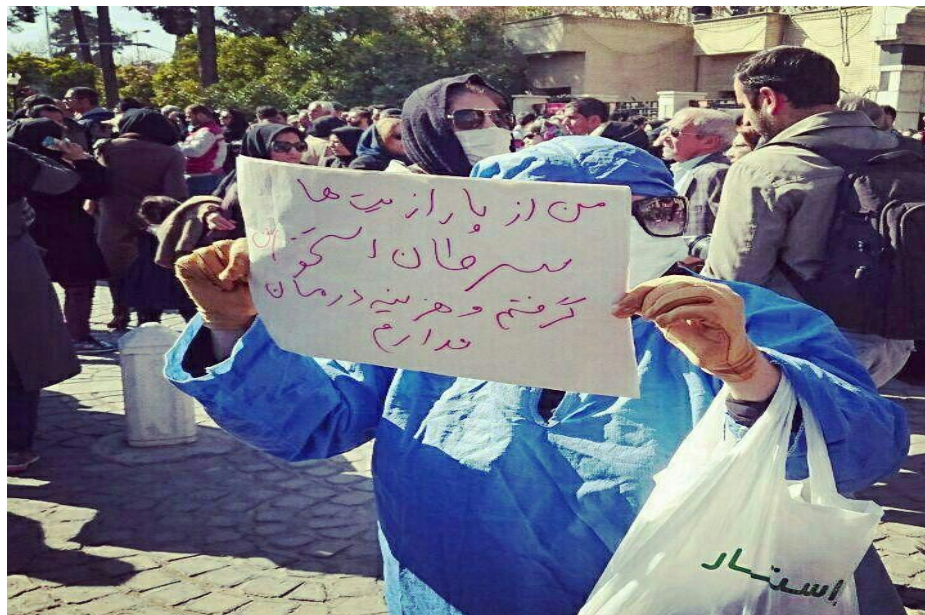 من از پارازیت‌ها
سرطان استخوان
گرفتم و هزینه درمان
ندارم
استار